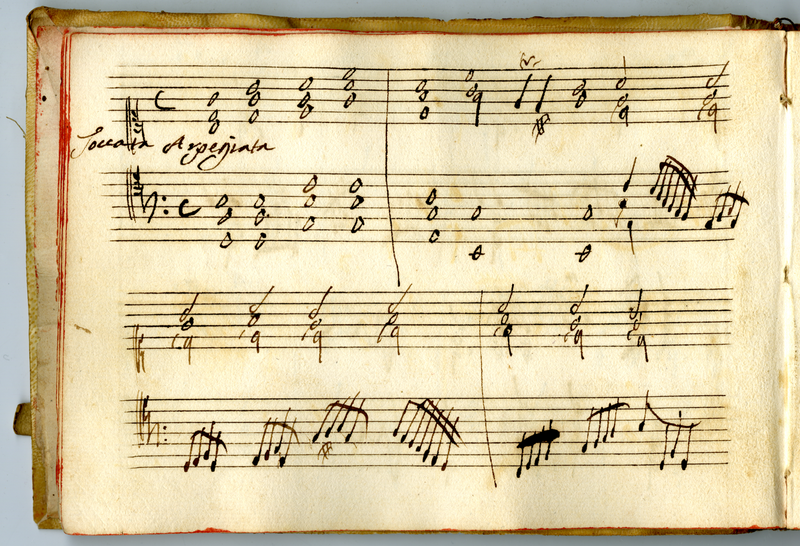 Toccata Arpegiata